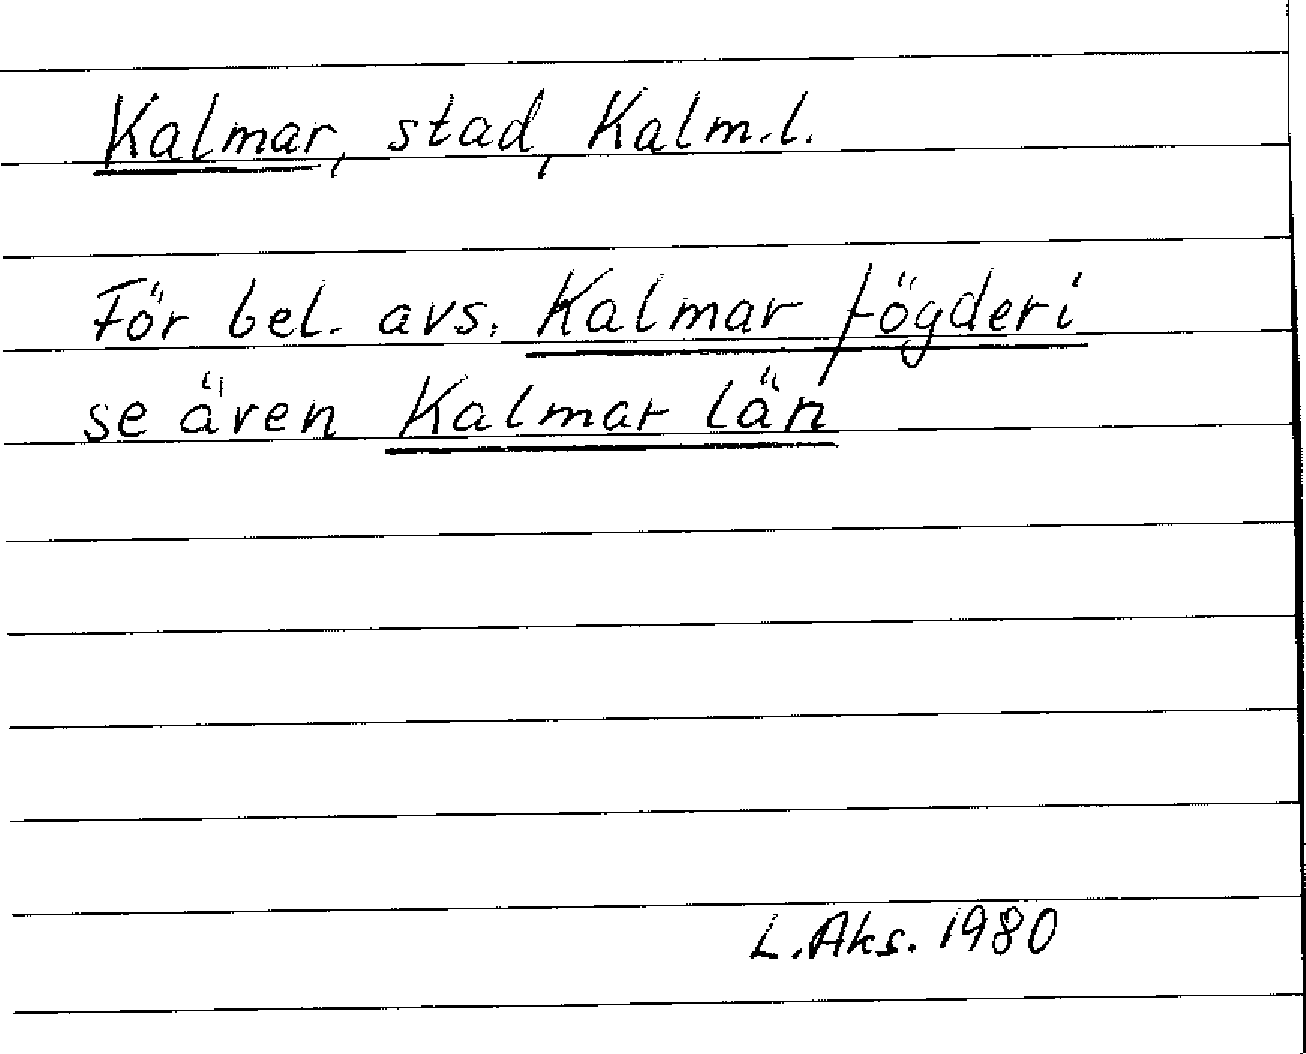 Kalmar, stad, Kalm.l.
För bel. avs. Kalmar fögderi
se även Kalmar län
L.Aks. 1980